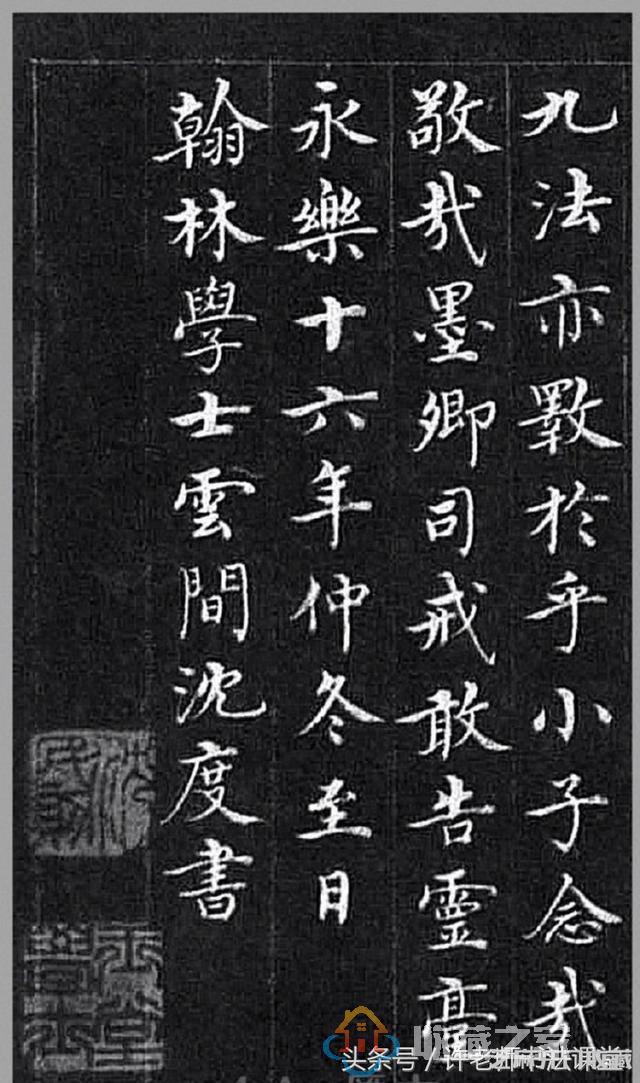 九法亦斁於乎小子念哉
敬哉墨卿司戒敢告靈臺
永樂十六年仲冬至日
翰林學士雲間沈度書
收藏之家
头条号／许老师书法课堂